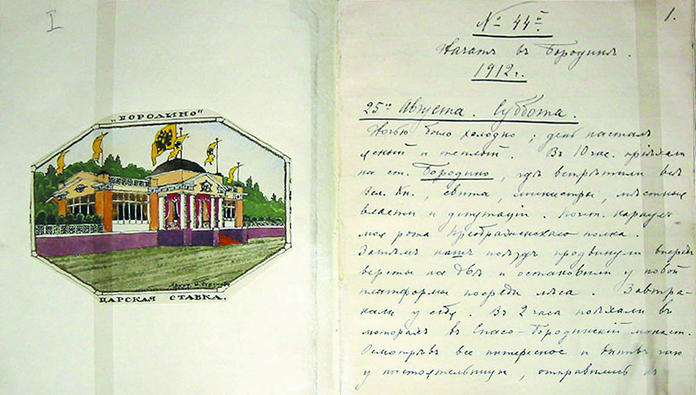 I
„БОРОДИНО"
ЦАРСКАЯ СТАВКА.
1.
№ 44й
Начатъ въ Бородинѣ.
1912 г.
25го Августа. Суббота.
Ночью было холодно; день насталъ
ясный и теплый. Въ 10 час. приѣхали
на ст. Бородино, гдѣ встрѣтили всѣ
Вел. Кн., свита, министры, мѣстныя
власти и депутаціи. Почет. караулъ
моя рота Преображенскаго полка.
Затѣмъ нашъ поѣздъ продвинули впередъ
версты на двѣ и остановили у новой
платформы посреди лѣса. Завтра-
кали у себя. Въ 2 часа поѣхали въ
моторахъ въ Спасо-Бородинскій монаст.
Осмотрѣвъ все интересное и выпивъ чаю
у настоятельницы, отправились въ